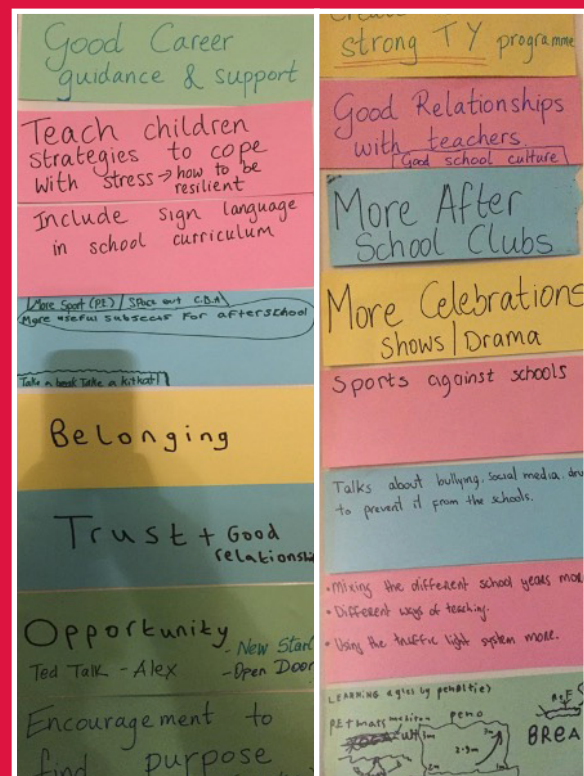 Good Career
guidance & support
Teach children
strategies to cope
with stress → how to be
resilient
Include sign language
in school curriculum
More Sport (P.E) / Space out C.B.A
More useful subjects for afterschool
Take a break Take a kitkat!
Belonging
Trust + Good
relationship
Opportunity
- New Start
Ted Talk - Alex
- Open Door
Encouragement to
find purpose
strong TY programme
Good Relationships
with teachers
Good school culture
More After
School Clubs
More Celebrations
Shows / Drama
Sports against schools
Talks about bullying, social media,
to prevent it from the schools.
• Mixing the different school years
• Different ways of teaching.
• Using the traffic light system more.
LEARNING by penalties
peno
2-9m
2m